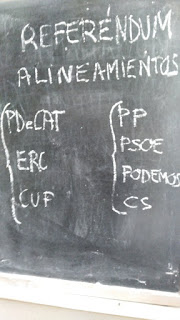 REFERÉNDUM
ALINEAMIENTOS
PDeCAT
ERC
CUP
PP
PSOE
PODEMOS
CS